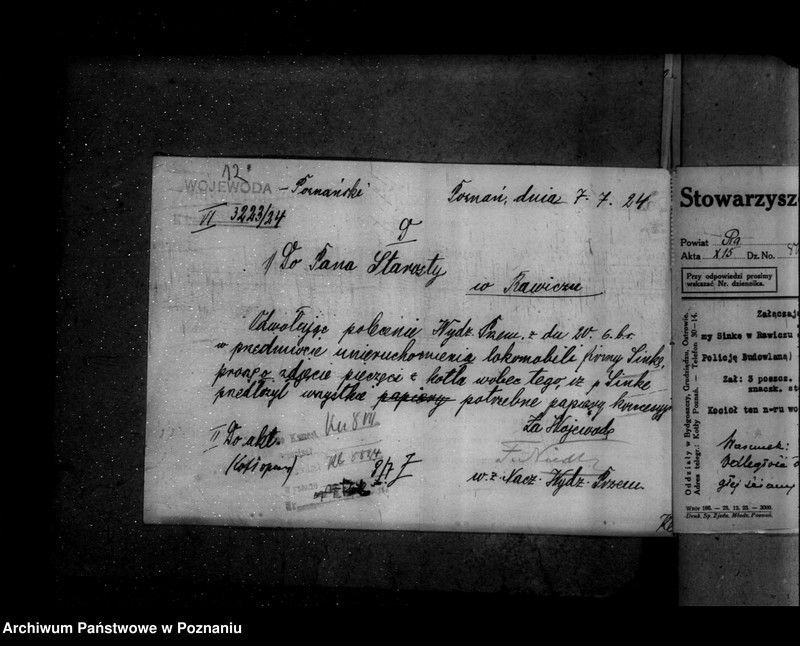 12
WOJEWODA - Poznański
Poznań, dnia 7. 7. 24
VI 3223/24
1/ Do Pana Starosty
w Rawiczu
Odwołując polecenie Wydz. Przem. z dn 20. 6. br.
w przedmiocie unieruchomienia lokomobili firmy Sinke,
proszę o zdjęcie pieczęci z kotła wobec tego iż p. Sinke
przedłożył wszystkie papiery potrzebne papiery koncesyj
II Do akt.
Za Wojewodę
w. z. Nacz. Wydz. Przem.
Stowarzysz
Powiat Ra
Akta x15 Dz. No.
Przy odpowiedzi prosimy
wskazać Nr. dziennika.
Oddziały w Bydgoszczy, Grudziądzu, Ostrowie.
Adres telegr.: Kotły Poznań. — Telefon 30-14.
Załączaj
my Sinke w Rawiczu
Policję Budowlaną)
Zał: 3 poszcz.
znaczk. st
Kocioł ten n-ru wo
Warunek:
Odległość
Wzór 106. — 23. 12. 22. — 2000.
Druk. Sp. Zjedn. Młodz. Poznań.
Archiwum Państwowe w Poznaniu